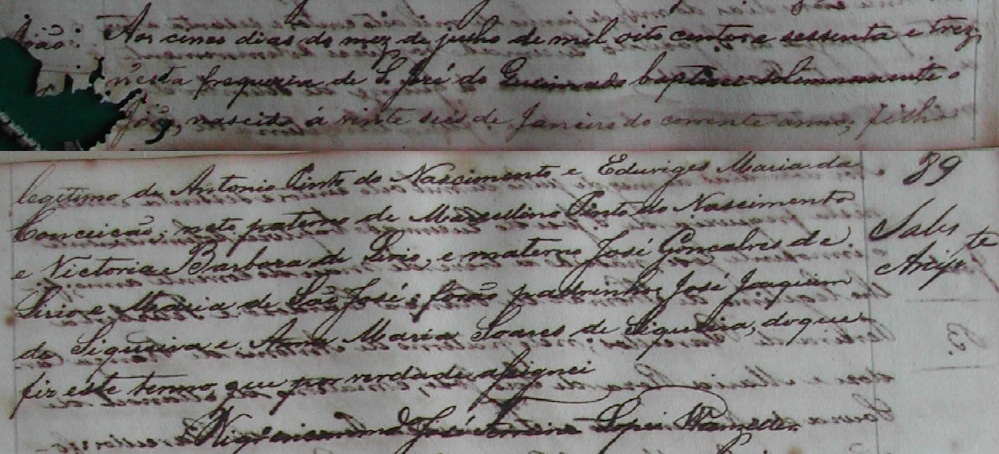 João:
Aos cinco dias do mez de julho de mil oito centos e sessenta e trez,
n'esta freguezia de S. José do Queimado baptisei solemnemente o
João, nascido á vinte seis de Janeiro do corrente anno, filho
legitimo de Antonio Pinto do Nascimento e Eduviges Maria da
Conceicão; neto paterno de Marcellino Pinto do Nascimento
e Victoria Barbara de Lirio, e materno José Gonçalves de
Lirio e Maria de São José; forão padrinhos José Joaquim
de Siqueira e Anna Maria Soares de Siqueira; do que
fiz este termo, que por verdade assignei
José Lopes
89